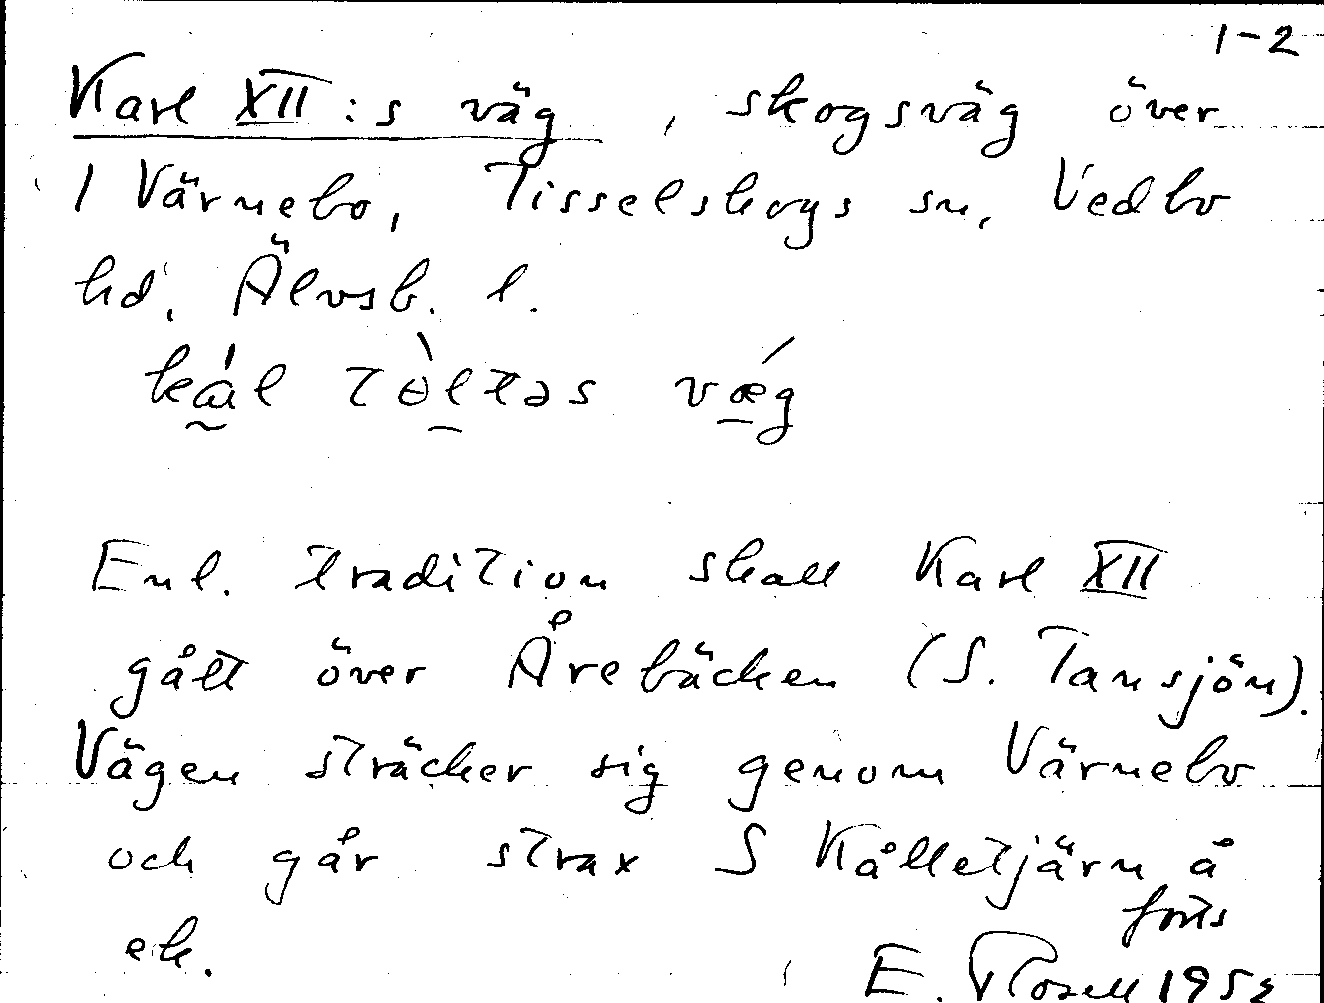 1-2
Karl XII:s väg, skogsväg över
1 Värnebo, Tisselskogs sn, Vedbo
hd, Älvsb. l.
Enl. tradition skall Karl XII
gått över Årebäcken (S. Tansjön).
Vägen sträcker sig genom Värnebo
och går strax S Kålletjärn å
ek.
forts
E. Rosell 195